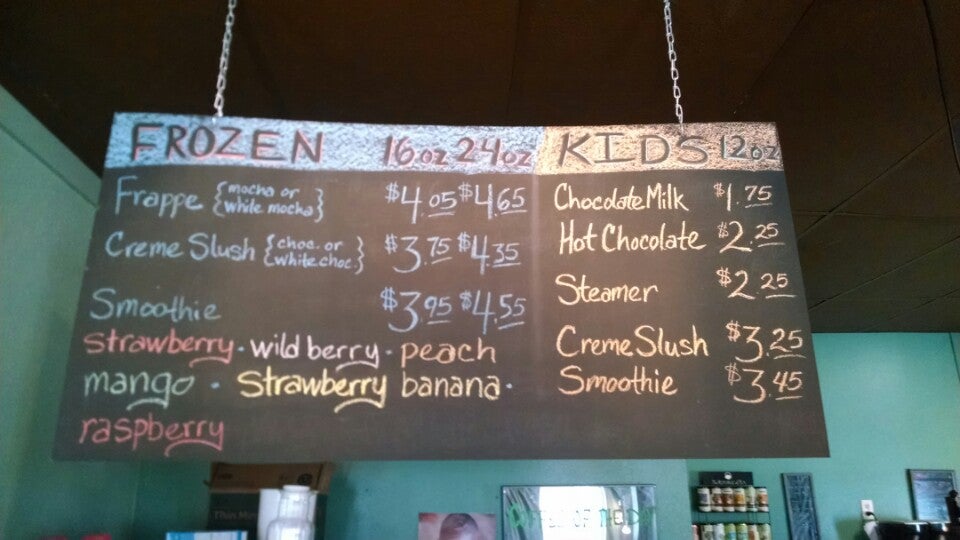 FROZEN 16oz 24oz
Frappe {mocha or white mocha} $4.05 $4.65
Creme Slush {choc. or white choc.} $3.75 $4.35
Smoothie $3.95 $4.55
strawberry · wild berry · peach
mango · Strawberry banana ·
raspberry
KIDS 12oz
Chocolate Milk $1.75
Hot Chocolate $2.25
Steamer $2.25
Creme Slush $3.25
Smoothie $3.45